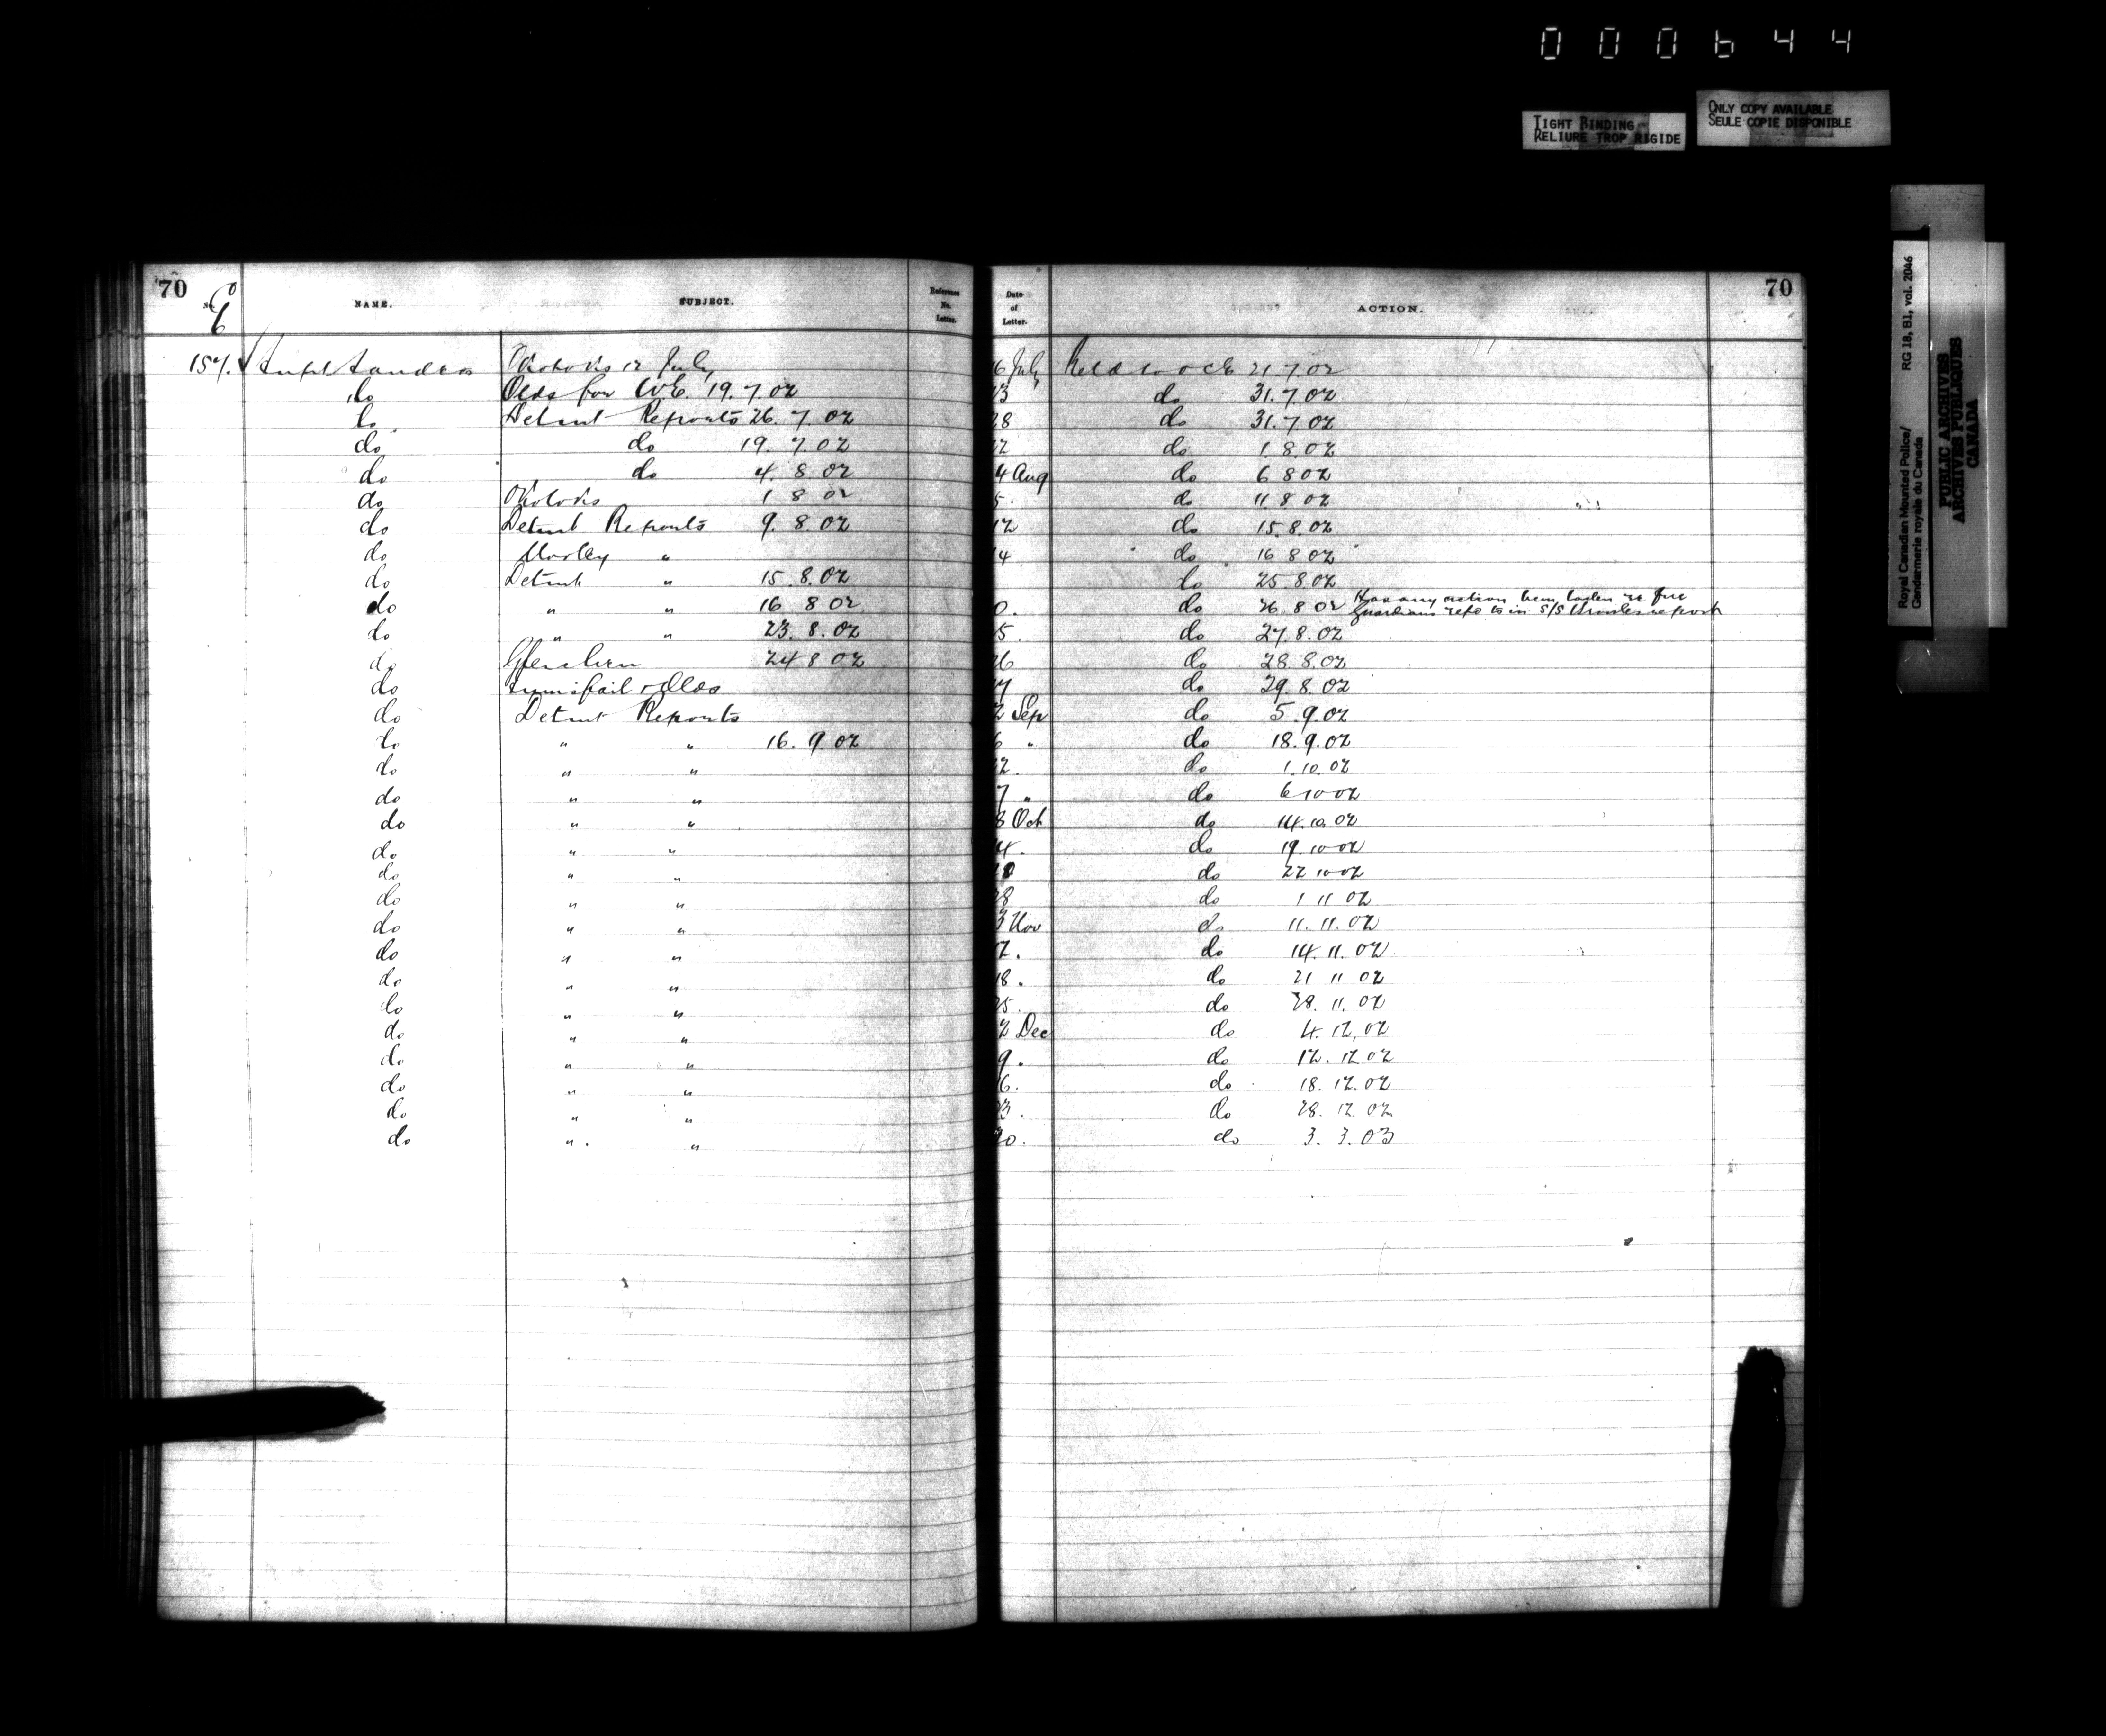 000644
TIGHT BINDING
RELIURE TROP RIGIDE
ONLY COPY AVAILABLE
SEULE COPIE DISPONIBLE
Royal Canadian Mounted Police/
Gendarmerie royale du Canada
RG 18, B1, vol. 2046
PUBLIC ARCHIVES
ARCHIVES PUBLIQUES
CANADA
70 NAME. SUBJECT. Reference No. Letter. Date of Letter. ACTION. 70
157. Supt Sanders Okotoks 12 July 16 July 21 7 02
do Olds for W.E. 19.7.02 23 do 31.7.02
do Detmt Reports 26.7.02 28 do 31.7.02
do do 19.7.02 22 do 1.8.02
do do 4.8.02 4 Aug do 6 8 02
do Okotoks 1 8 02 5. do 11 8 02
do Detmt Reports 9.8.02 12 do 15.8.02
do Morley " 14 do 16 8 02
do Detmt " 15.8.02 do 25 8 02
do " " 16 8 02 0. do 26 8 02 Has any action been taken re fire
Guardians refd to in S/S report
do " " 23.8.02 5. do 27.8.02
do Gleichen 24 8 02 26 do 28.8.02
do Innisfail & Olds 27 do 29.8.02
do Detmt Reports 2 Sep do 5.9.02
do " " 16.9 02 6 " do 18.9.02
do " " 2. do 1.10.02
do " " 7 " do 6 10 02
do " " 8 Oct do 14.10.02
do " " 4. do 19.10 02
do " " do 22 10 02
do " " 28 do 1 11 02
do " " 3 Nov do 11.11.02
do " " 2. do 14.11.02
do " " 18. do 21 11 02
do " " 25. do 28.11.02
do " " 2 Dec do 4.12.02
do " " 9. do 12.12.02
do " " 16. do 18.12.02
do " " 23. do 28.12.02
do " " 30. do 3.3.03